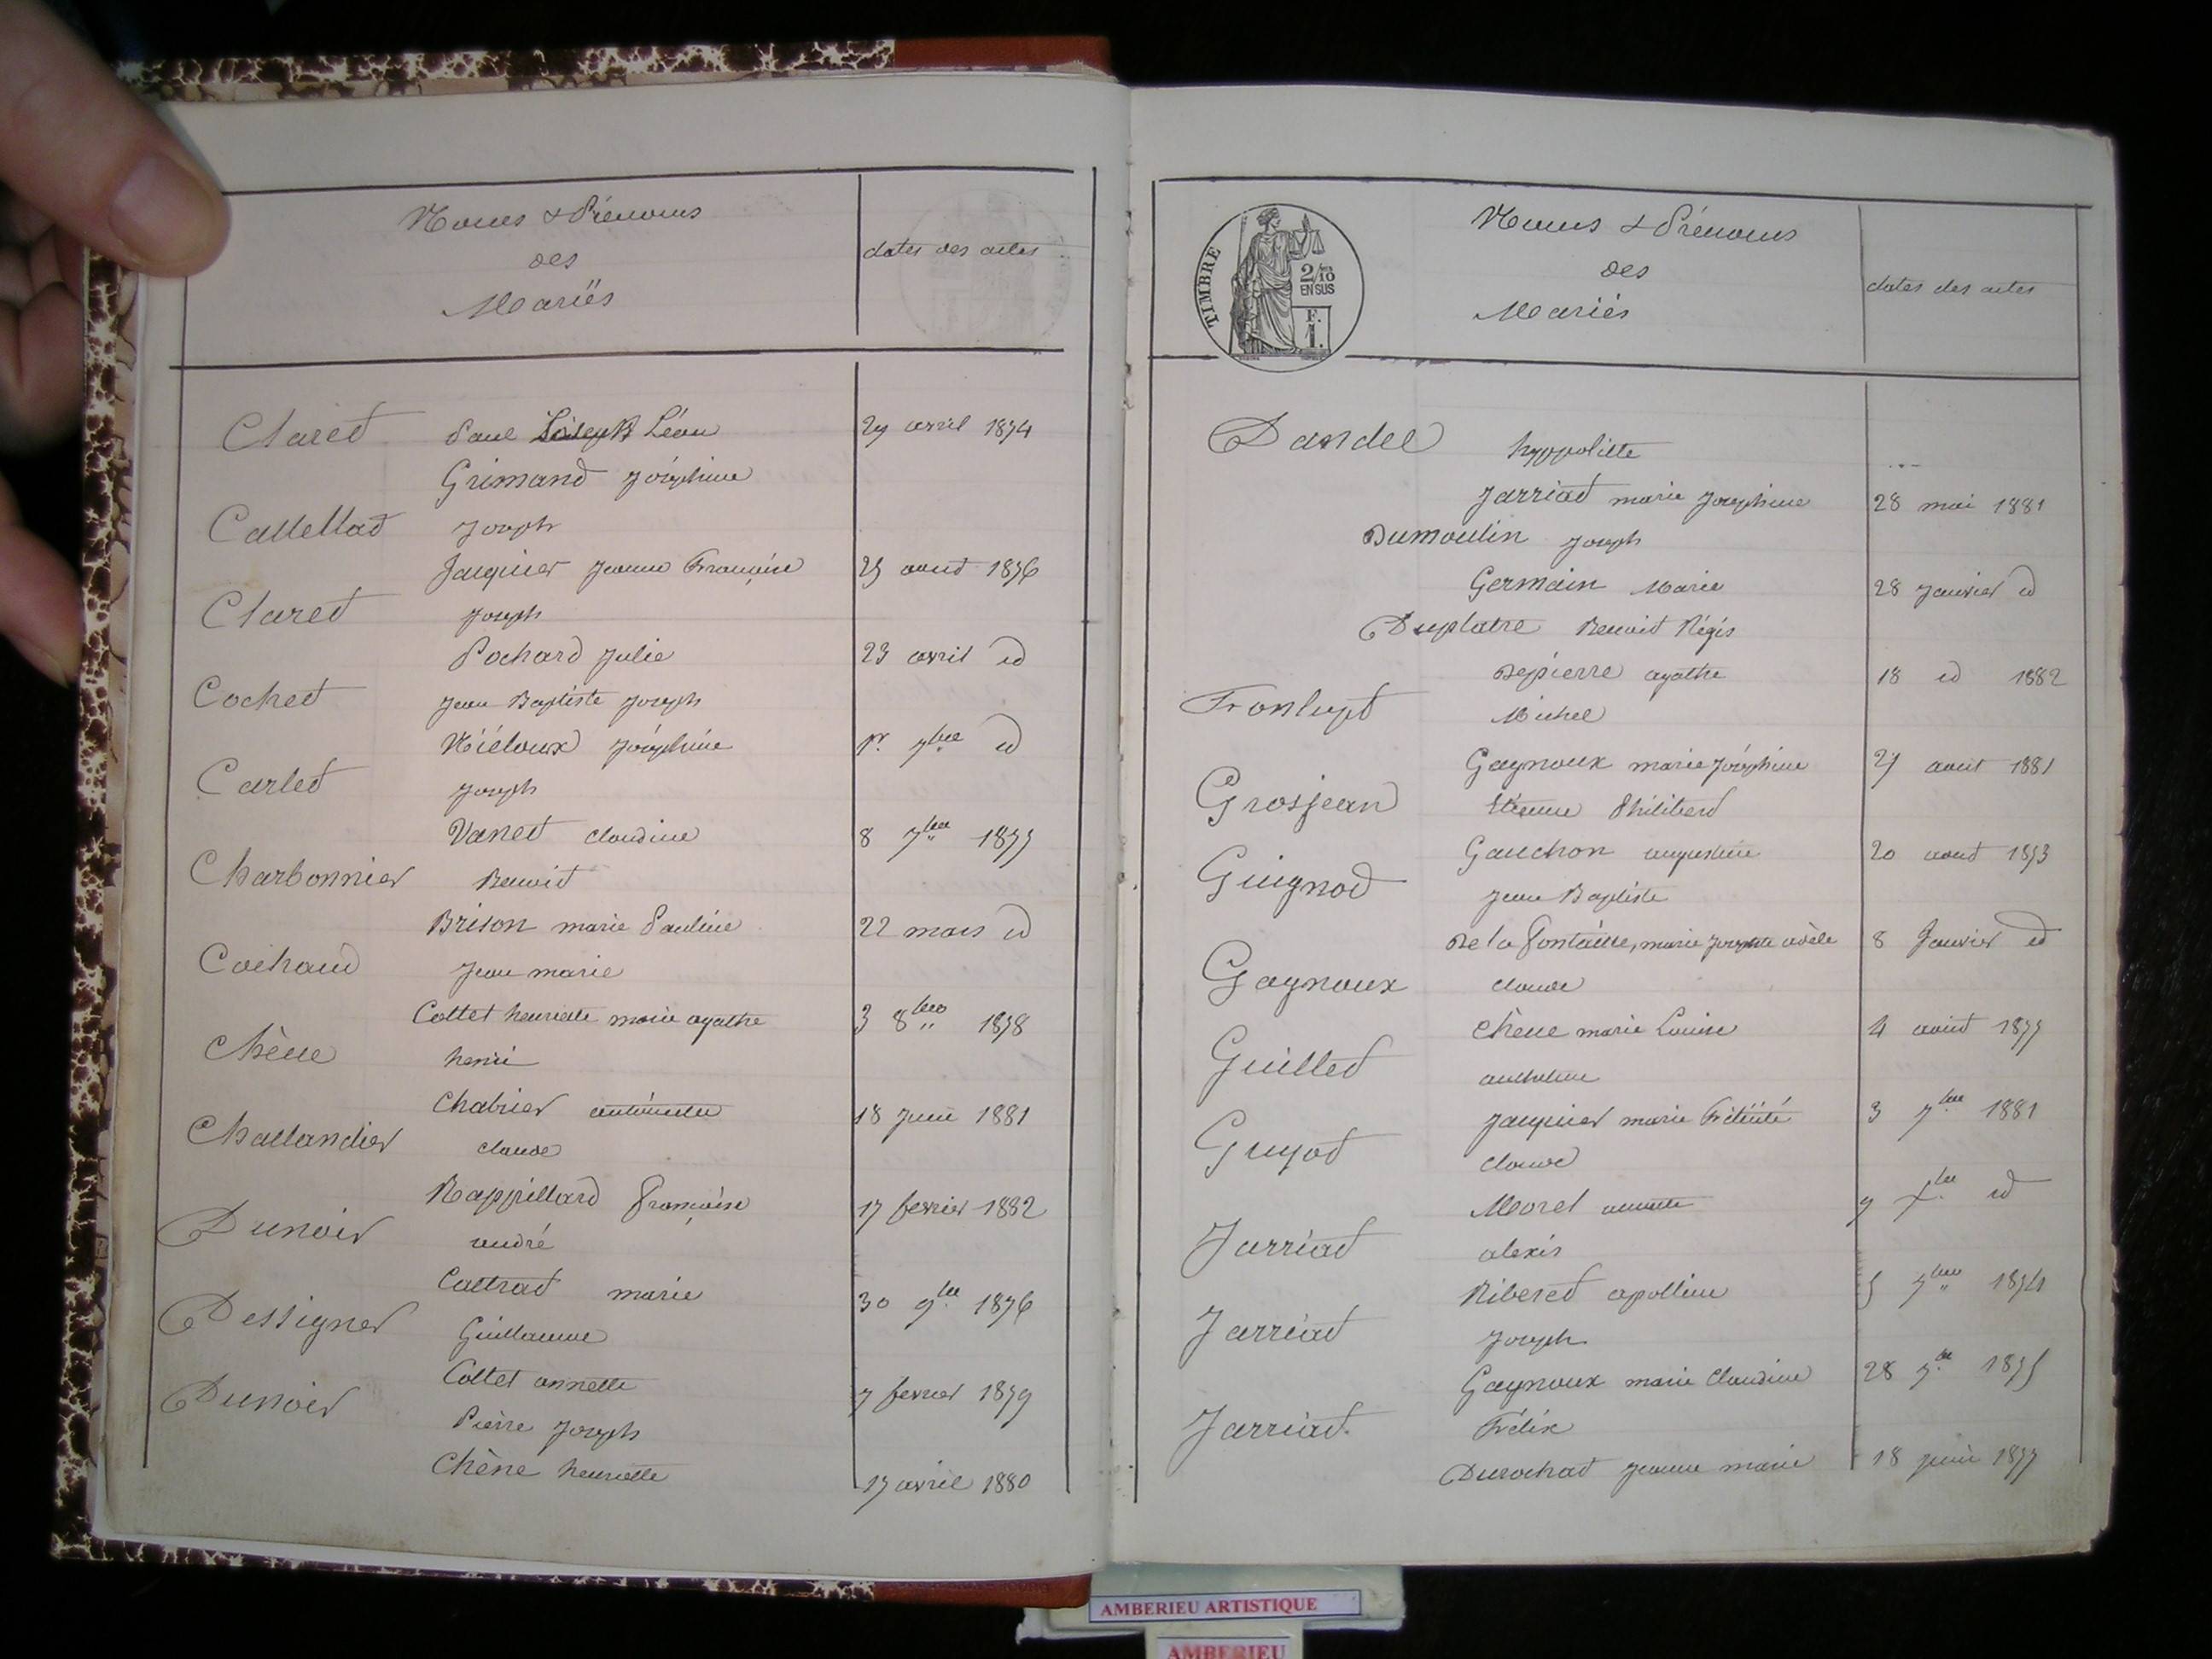 Noms & Prénoms
des
Mariés
dates des actes
Claret Paul Léon 29 avril 1874
Grimand Joséphine
Cattellat Joseph
Jacquier Jeanne Françoise 25 aout 1876
Claret Joseph
Pochard Julie 23 avril id
Cochet Jean Baptiste Joseph
Joséphine 1er 7bre id
Carlet Joseph
Vanet Claudine 8 7bre 1877
Charbonnier Benoit
Brison marie Pauline 22 mars id
Cochaud Jean marie
Collet henriette marie agathe 3 8bre 1878
Chêne henri
Chabrier antoinette 18 Juin 1881
Challandier claude
Rappillard françoise 17 fevrier 1882
Dunoir andré
Cattrat marie 30 9bre 1876
Dessigner Guillaume
Collet annette 7 fevrier 1879
Dunoir Pierre Joseph
Chêne henriette 17 avril 1880
TIMBRE
2/10
EN SUS
F.
1.
Noms & Prénoms
des
Mariés
dates des actes
Dandel hyppolitte
Jarriat marie Josephine 28 mai 1881
Dumoulin Joseph
Germain Marie 28 Janvier id
Duplatre Benoit Régis
Depierre agathe 18 id 1882
Fronlupt Michel
Gagnoux marie Joséphine 27 aout 1881
Grosjean Etienne Philibert
Gauchon augustine 20 aout 1873
Guignod Jean Baptiste
De la fontaine, marie Josephte adèle 8 Janvier id
Gagnoux claude
Chêne marie Louise 4 août 1877
Guillet anthelme
Jacquier marie Félicité 3 7bre 1881
Guyot claude
Morel annette 9 Xbre id
Jarriat alexis
Riberet apolline 5 7bre 1874
Jarriat Joseph
Gagnoux marie Claudine 28 7bre 1875
Jarriat Félix
Durochat Jeanne marie 18 juin 1877
AMBERIEU ARTISTIQUE
AMBERIEU